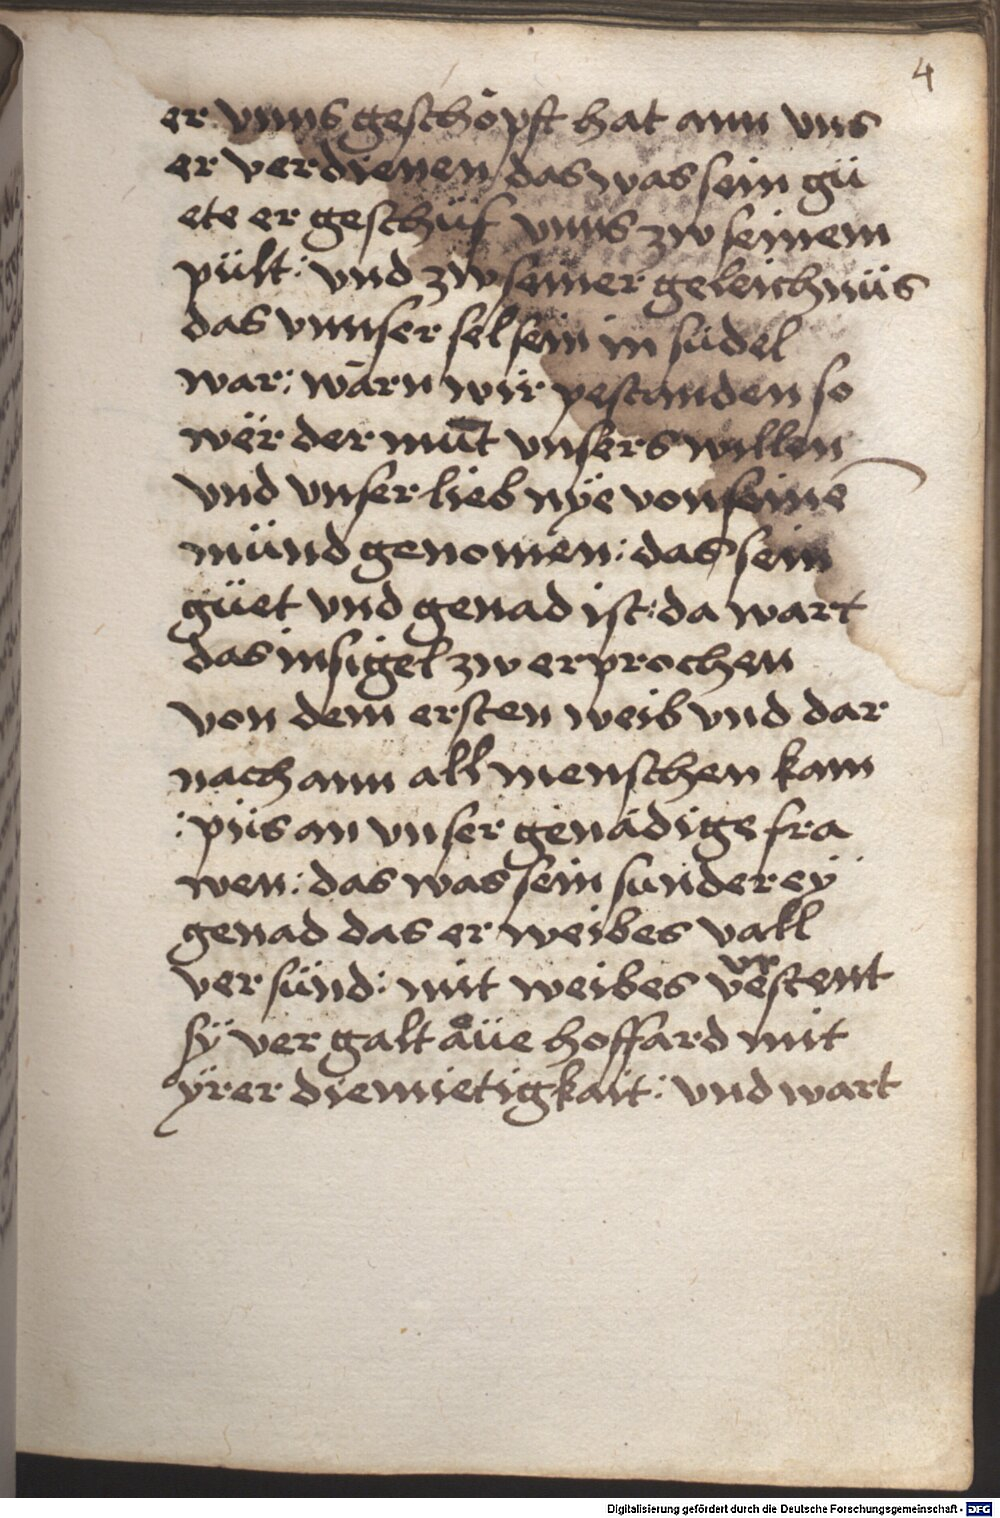 4
er vnns geschöpft hat ann vns
er verdienen das was sein gü
ete er geschüf vnns zw seinem
pült : vnd zw seiner geleichnüs
das vnnser sel sein in südel
war : wärn wir pestanden so
wër der müt vnsers willen
vnd vnser lieb nÿe von seinē
münd genomen : das sein
güet vnd genad ist : da wart
das insigel zw erprochen
von dem ersten weib vnd dar
nach ann all menschen kam
: piis an vnser genädige fra
wen : das was sein sunder eÿ
genad das er weibes vall
versünd : mit weibes vrstent
sÿ vergalt hoffard mit
ÿrer diemietigkait : vnd wart
Digitalisierung gefördert durch die Deutsche Forschungsgemeinschaft - DFG